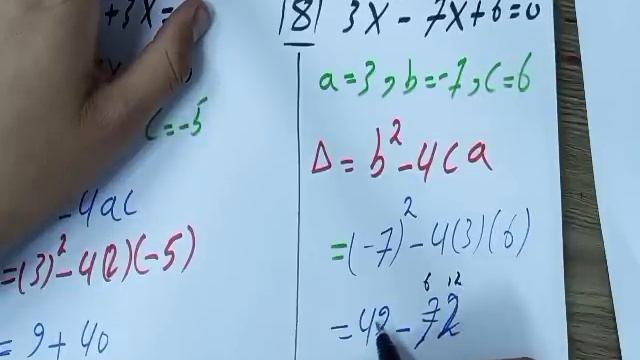 +3X=
C=-5
-4ac
=(3)²-4(2)(-5)
=9+40
181 3X-7X+6=0
a=3, b=-7, c=6
Δ=b²-4ca
=(-7)²-4(3)(6)
6 12
=49-72